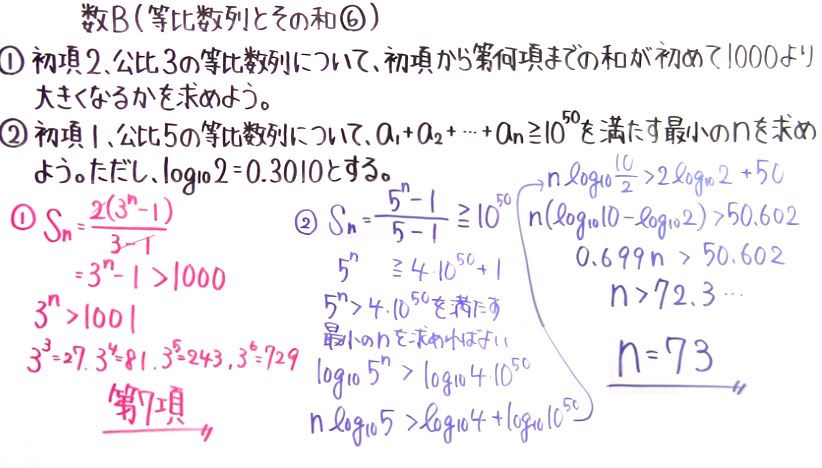 数B(等比数列とその和⑥)
① 初項2、公比3の等比数列について、初項から第何項までの和が初めて1000より
大きくなるかを求めよう。
② 初項1、公比5の等比数列について、a₁+a₂+…+aₙ≧10⁵⁰を満たす最小のnを求め
よう。ただし、log₁₀2=0.3010とする。
① Sₙ=2(3ⁿ-1)/(3-1)
=3ⁿ-1>1000
3ⁿ>1001
3³=27.3⁴=81.3⁵=243,3⁶=729
第7項
② Sₙ=(5ⁿ-1)/(5-1)≧10⁵⁰
5ⁿ ≧4·10⁵⁰+1
5ⁿ>4·10⁵⁰を満たす
最小のnを求めればよい
log₁₀5ⁿ>log₁₀4·10⁵⁰
nlog₁₀5>log₁₀4+log₁₀10⁵⁰
→nlog₁₀10/2>2log₁₀2+50
n(log₁₀10-log₁₀2)>50.602
0.699n>50.602
n>72.3…
n=73